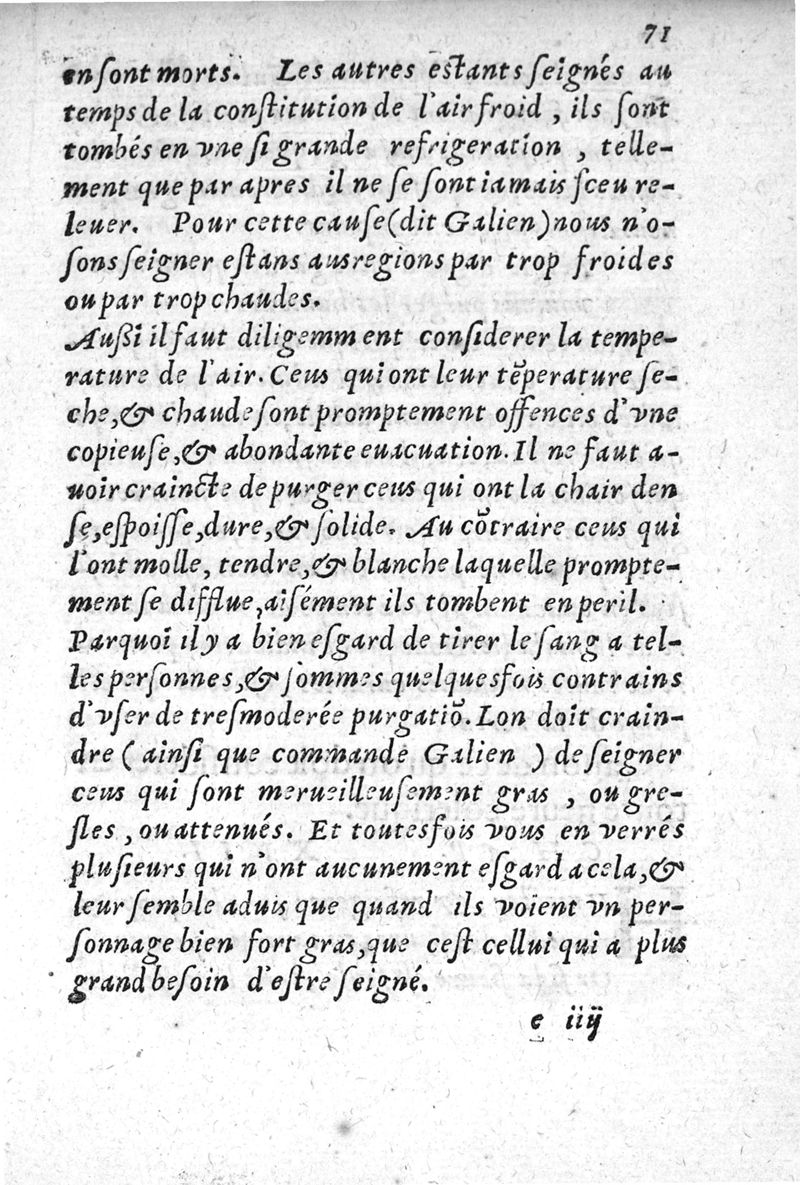 71
en sont morts. Les autres eſtants ſeignés au
temps de la conſtitution de l'air froid , ils ſont
tombés en vne ſi grande refrigeration , telle-
ment que par apres il ne ſe ſont iamais ſceu re-
leuer. Pour cette cauſe (dit Galien) nous n'o-
ſons ſeigner eſtans aus regions par trop froides
ou par trop chaudes.
Auſſi il faut diligemment conſiderer la tempe-
rature de l'air. Ceus qui ont leur tĕperature ſe-
che, & chaude ſont promptement offences d'vne
copieuſe, & abondante euacuation. Il ne faut a-
uoir craincte de purger ceus qui ont la chair den
ſe, eſpoiſſe, dure, & ſolide. Au cŏtraire ceus qui
l'ont molle, tendre, & blanche laquelle prompte-
ment ſe difflue, aiſément ils tombent en peril.
Parquoi il y a bien eſgard de tirer le ſang a tel-
les perſonnes, & ſommes quelquesfois contrains
d'vſer de treſmoderée purgatiŏ. Lon doit crain-
dre ( ainſi que commande Galien ) de ſeigner
ceus qui ſont merueilleuſement gras , ou gre-
ſles , ou attenués. Et toutesfois vous en verrés
pluſieurs qui n'ont aucunement eſgard a cela, &
leur ſemble aduis que quand ils voient vn per-
ſonnage bien fort gras, que ceſt cellui qui a plus
grand beſoin d'eſtre ſeigné.
e iiij